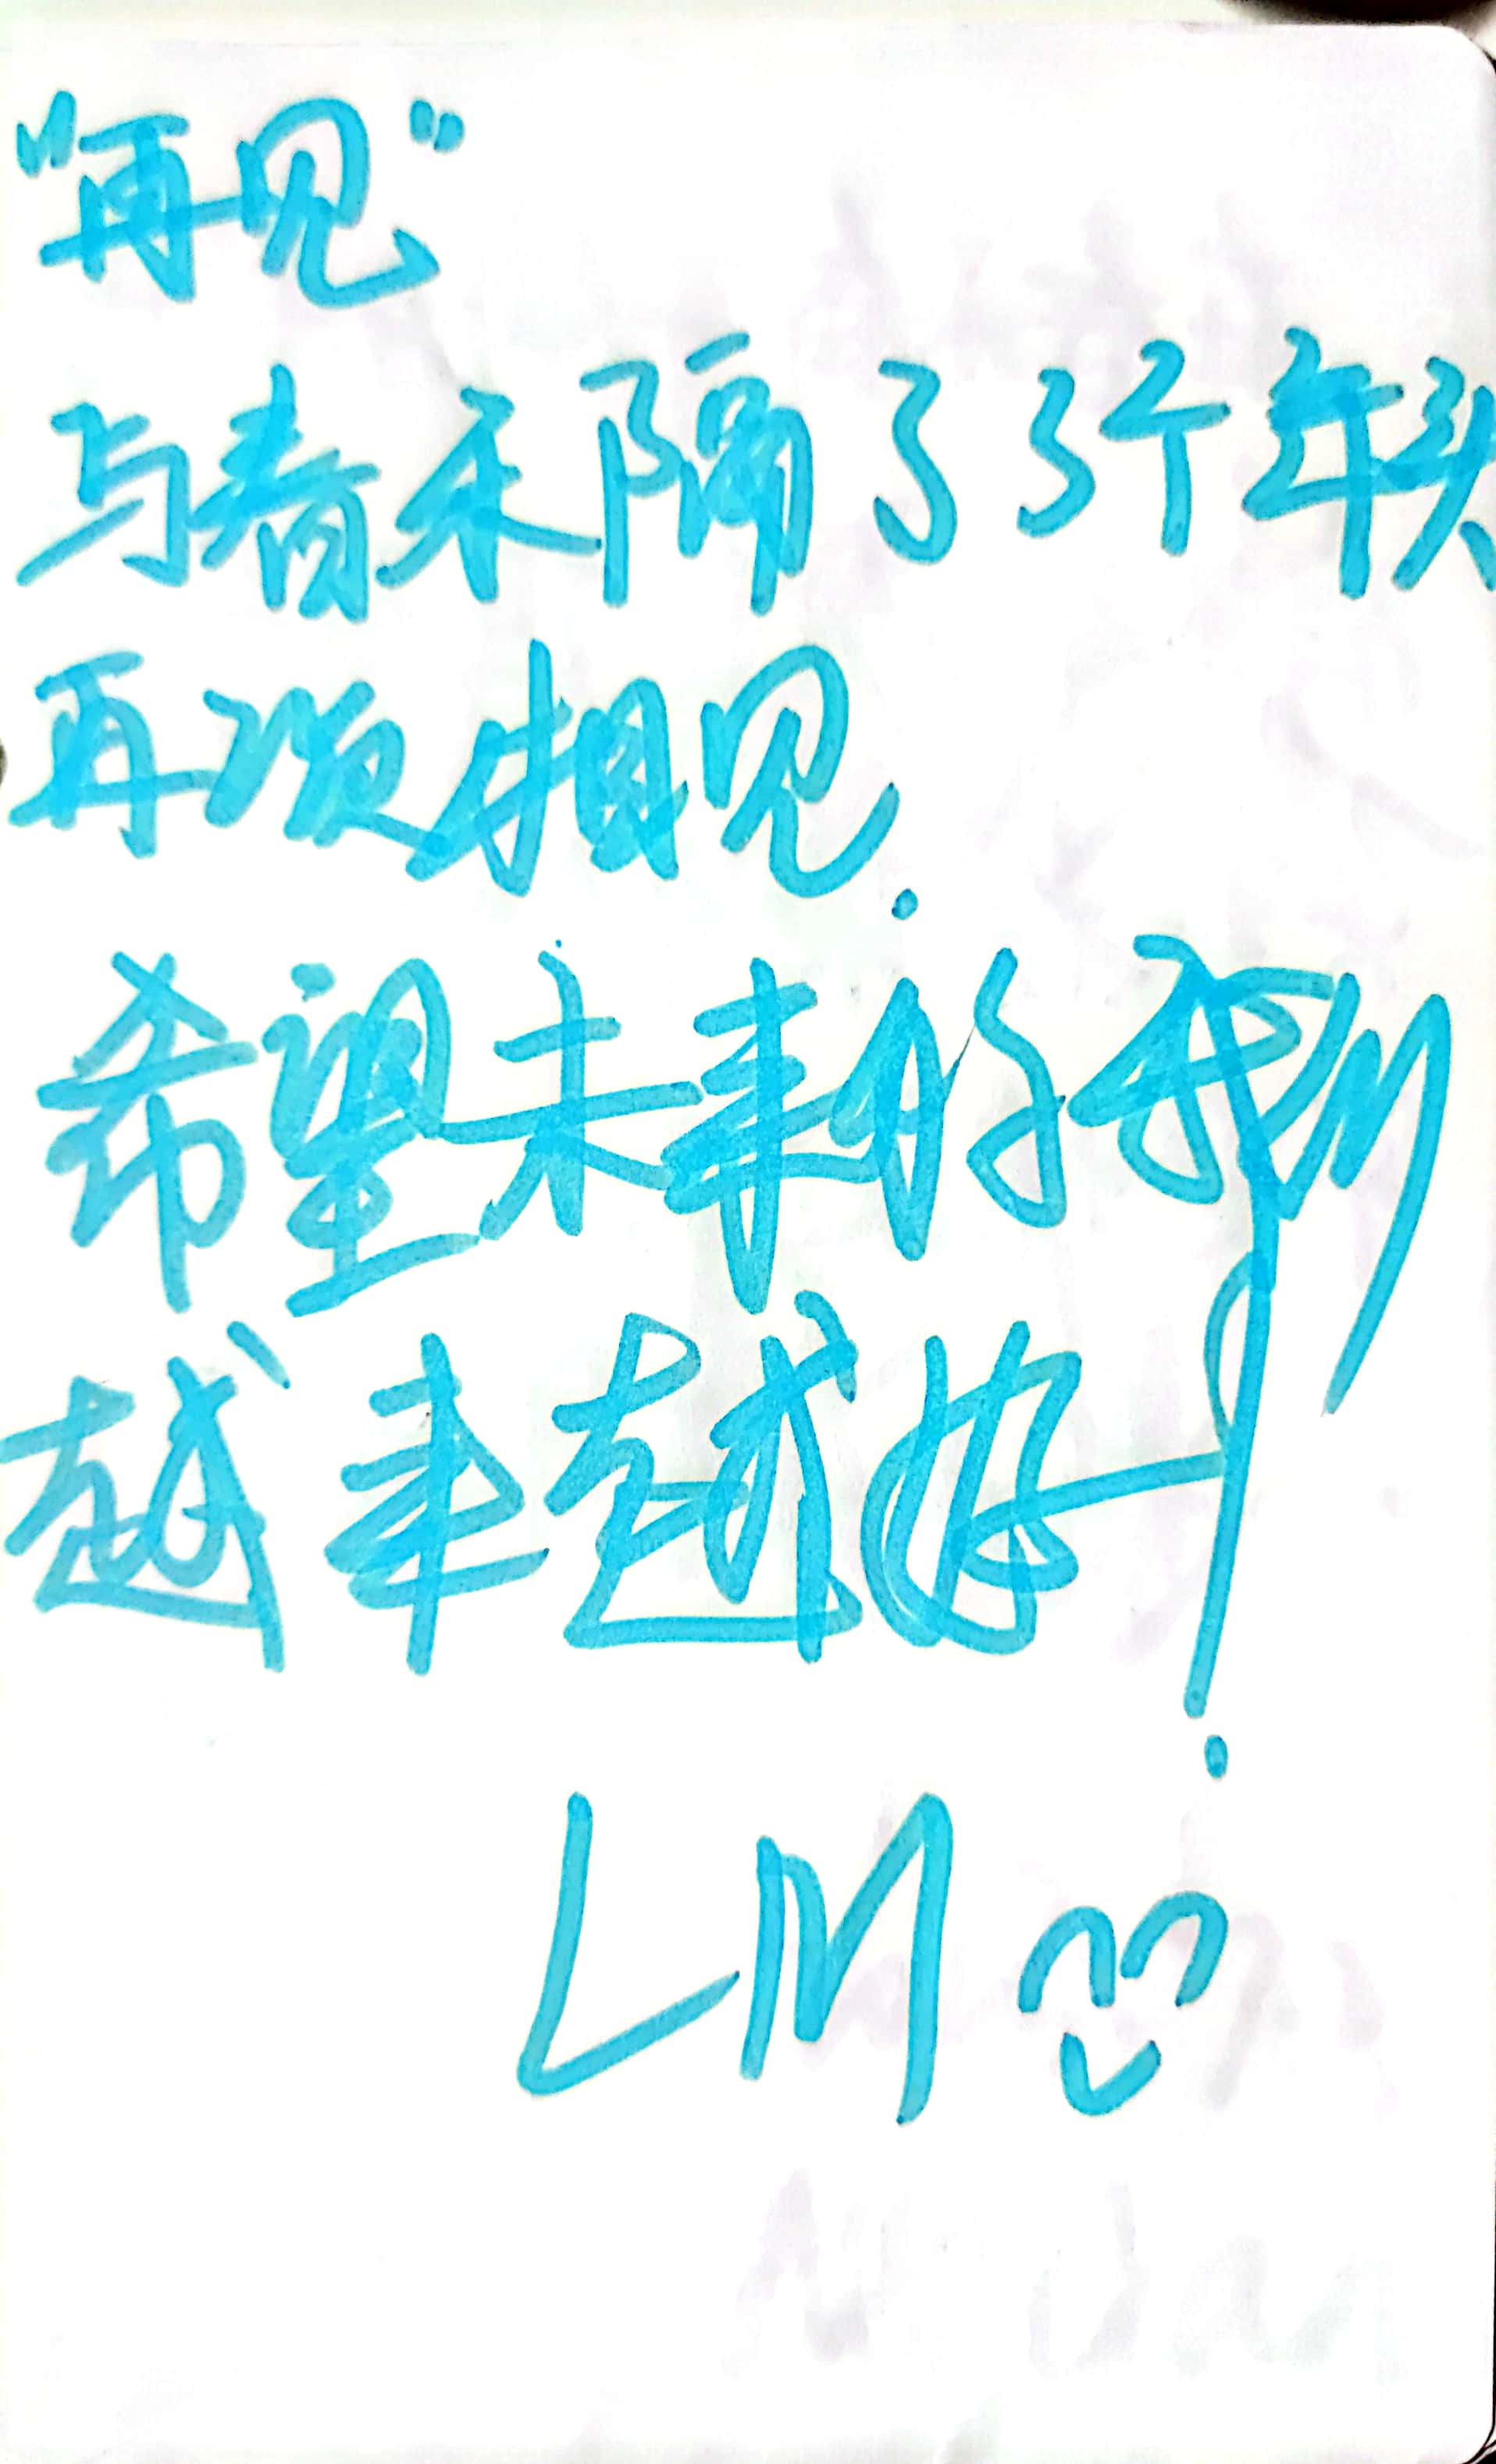 "再见"
与青禾隔了3个年头
再次相见.
希望未来的我们
越来越好!
LM